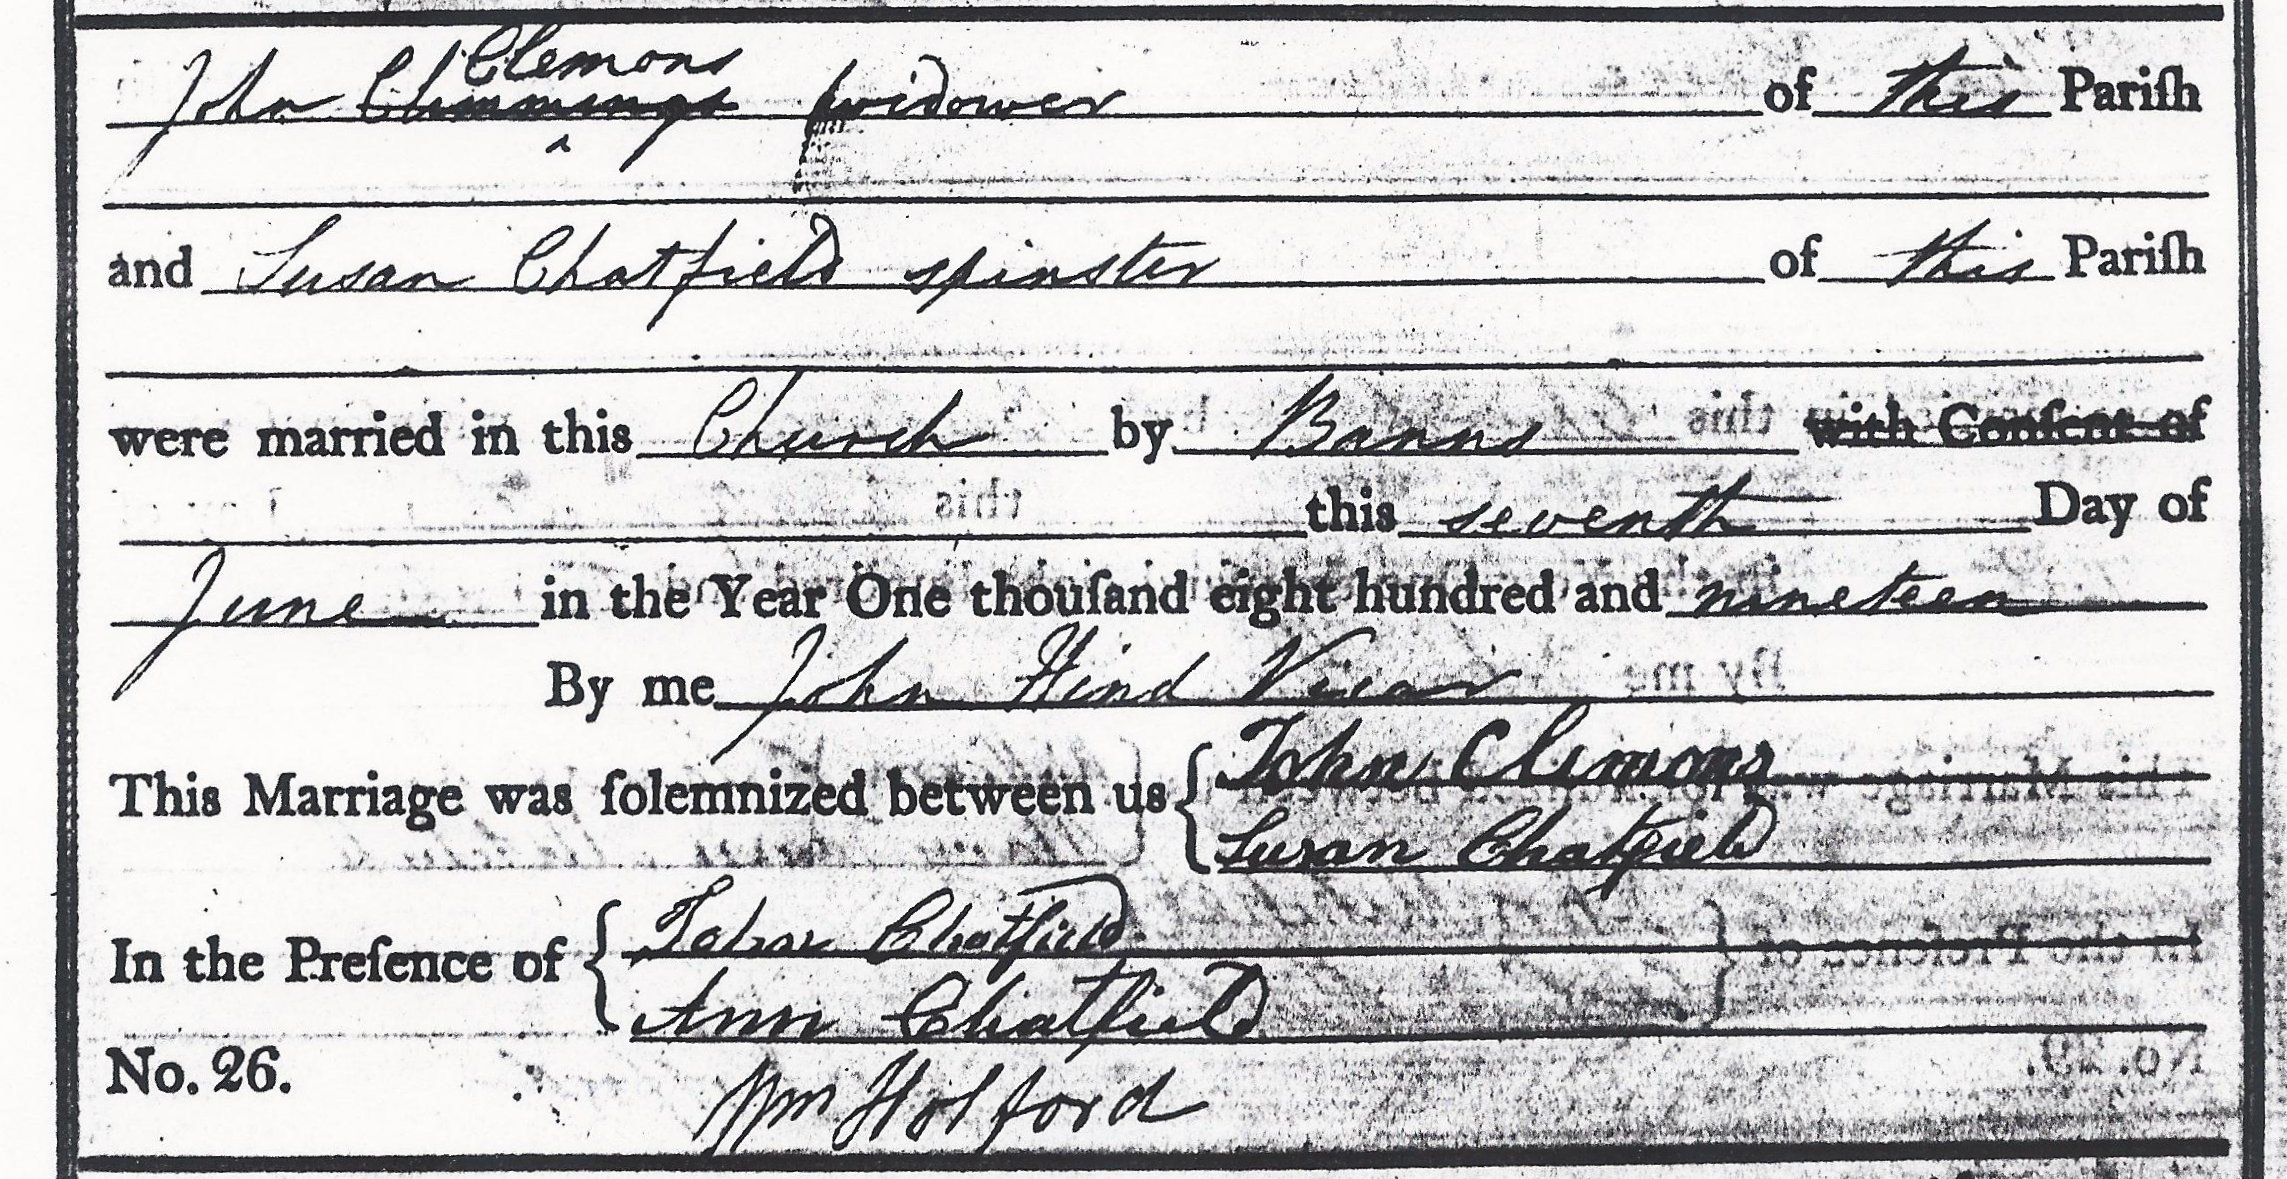 Clemons
John Clemmings widower of this Pariſh
^
and Susan Chatfield spinster of this Pariſh
were married in this Church by Banns with Conſent of
this seventh Day of
June in the Year One thouſand eight hundred and nineteen
By me John Hind Vicar
This Marriage was ſolemnized between us { John Clemons
Susan Chatfield
In the Preſence of { John Chatfield
Ann Chatfield
No. 26.
Wm Holford